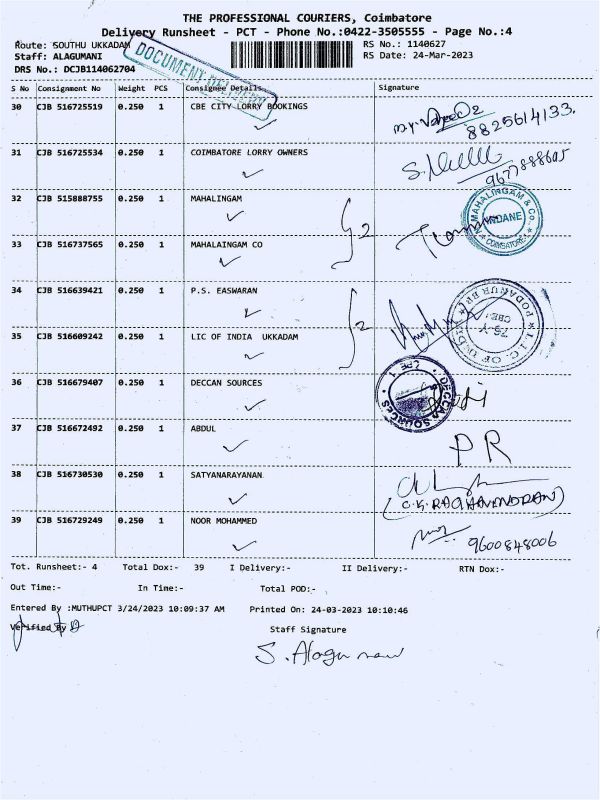 THE PROFESSIONAL COURIERS, Coimbatore
Delivery Runsheet - PCT - Phone No.:0422-3505555 - Page No.:4
Route: SOUTHU UKKADAM RS No.: 1140627
Staff: ALAGUMANI RS Date: 24-Mar-2023
DRS No.: DCJB114062704
S No Consignment No Weight PCS Consignee Details Signature
30 CJB 516725519 0.250 1 CBE CITY LORRY BOOKINGS
8825614133.
31 CJB 516725534 0.250 1 COIMBATORE LORRY OWNERS
32 CJB 515888755 1 MAHALINGAM
0.250
MAHALINGAM & Co.,
INDANE
COIMBATORE
2
33 CJB 516737565 0.250 1 MAHALAINGAM CO
34 CJB 516639421 0.250 1 P.S. EASWARAN
2
L.I.C. OF INDIA
PODANUR BR.
75-Y
CBE
35 CJB 516609242 0.250 1 LIC OF INDIA UKKADAM
36 CJB 516679407 0.250 1 DECCAN SOURCES
DECCAN SOURCES
CBE-1
37 CJB 516672492 0.250 1 ABDUL
PR
38 CJB 516730530 0.250 1 SATYANARAYANAN
(C.K. RAGHAVENDRAN)
39 CJB 516729249 0.250 1 NOOR MOHAMMED
9600848006
Tot. Runsheet:- 4 Total Dox:- 39 I Delivery:- II Delivery:- RTN Dox:-
Out Time:- In Time:- Total POD:-
Entered By :MUTHUPCT 3/24/2023 10:09:37 AM Printed On: 24-03-2023 10:10:46
Verified By Staff Signature